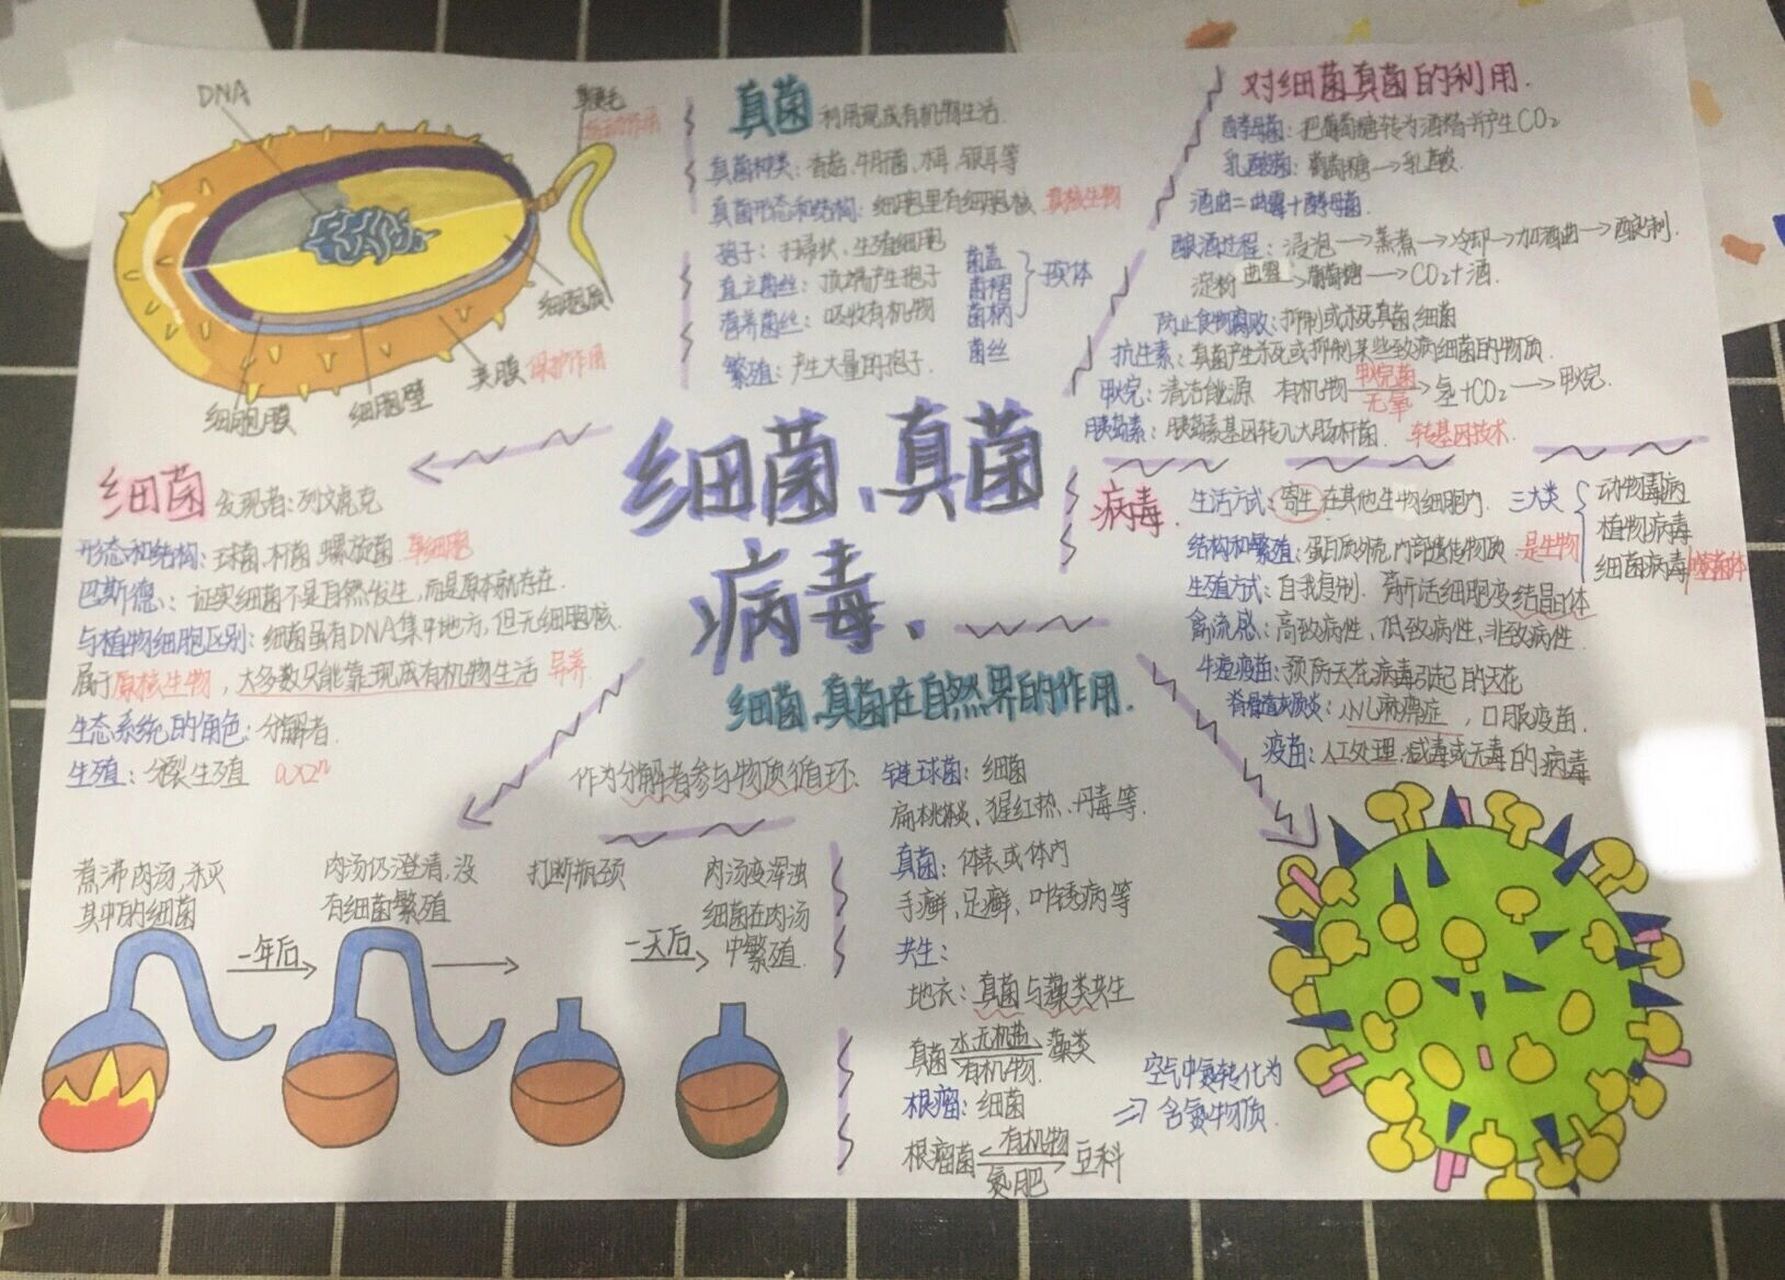 DNA
鞭毛
运动作用
细胞质
荚膜 保护作用
细胞壁
细胞膜
真菌 利用现成有机物生活.
真菌种类: 香菇、牛肝菌、木耳、银耳等
真菌形态和结构: 细胞里有细胞核 真核生物
孢子: 扫帚状、生殖细胞
直立菌丝: 顶端产生孢子
营养菌丝: 吸收有机物
繁殖: 产生大量的孢子.
菌盖
菌褶
菌柄
菌丝
对细菌真菌的利用.
酵母菌: 把葡萄糖转为酒精并产生CO2
乳酸菌: 葡萄糖→乳酸.
酒曲=曲霉+酵母菌.
酿酒过程: 浸泡→蒸煮→冷却→加酒曲→酿制.
淀粉 曲霉→葡萄糖→CO2+酒.
防止食物腐败: 抑制或杀死真菌、细菌
抗生素: 真菌产生杀死或抑制某些致病细菌的物质.
甲烷: 清洁能源 有机物 甲烷菌 无氧→氢+CO2→甲烷.
胰岛素: 胰岛素基因转入大肠杆菌. 转基因技术.
细菌、真菌
病毒、
细菌 发现者: 列文虎克
形态和结构: 球菌、杆菌、螺旋菌 单细胞
巴斯德: 证实细菌不是自然发生,而是原本就存在.
与植物细胞区别: 细菌虽有DNA集中地方,但无细胞核.
属于原核生物,大多数只能靠现成有机物生活 异养
生态系统的角色: 分解者.
生殖: 分裂生殖 a×2ⁿ
病毒.
生活方式: 寄生 在其他生物细胞内.
三大类
动物病毒
植物病毒
细菌病毒 噬菌体
结构和繁殖: 蛋白质外壳,内部遗传物质 是生物
生殖方式: 自我复制. 离开活细胞变结晶体
禽流感: 高致病性、低致病性、非致病性.
牛痘疫苗: 预防天花病毒引起的天花
脊骨道灰质炎: 小儿麻痹症,口服疫苗.
疫苗: 人工处理,减毒或无毒的病毒
细菌、真菌在自然界的作用.
作为分解者参与物质循环.
链球菌: 细菌
扁桃体炎、猩红热、丹毒等.
真菌: 体表或体内
手癣、足癣、叶锈病等
共生:
地衣: 真菌与藻类共生
真菌 水、无机盐 有机物. 藻类
根瘤: 细菌
根瘤菌 有机物 氮肥 豆科
空气中氮转化为
⇒含氮物质.
煮沸肉汤,杀灭
其中的细菌
一年后
肉汤仍澄清,没
有细菌繁殖
打断瓶颈
一天后
肉汤变浑浊
细菌在肉汤
中繁殖.